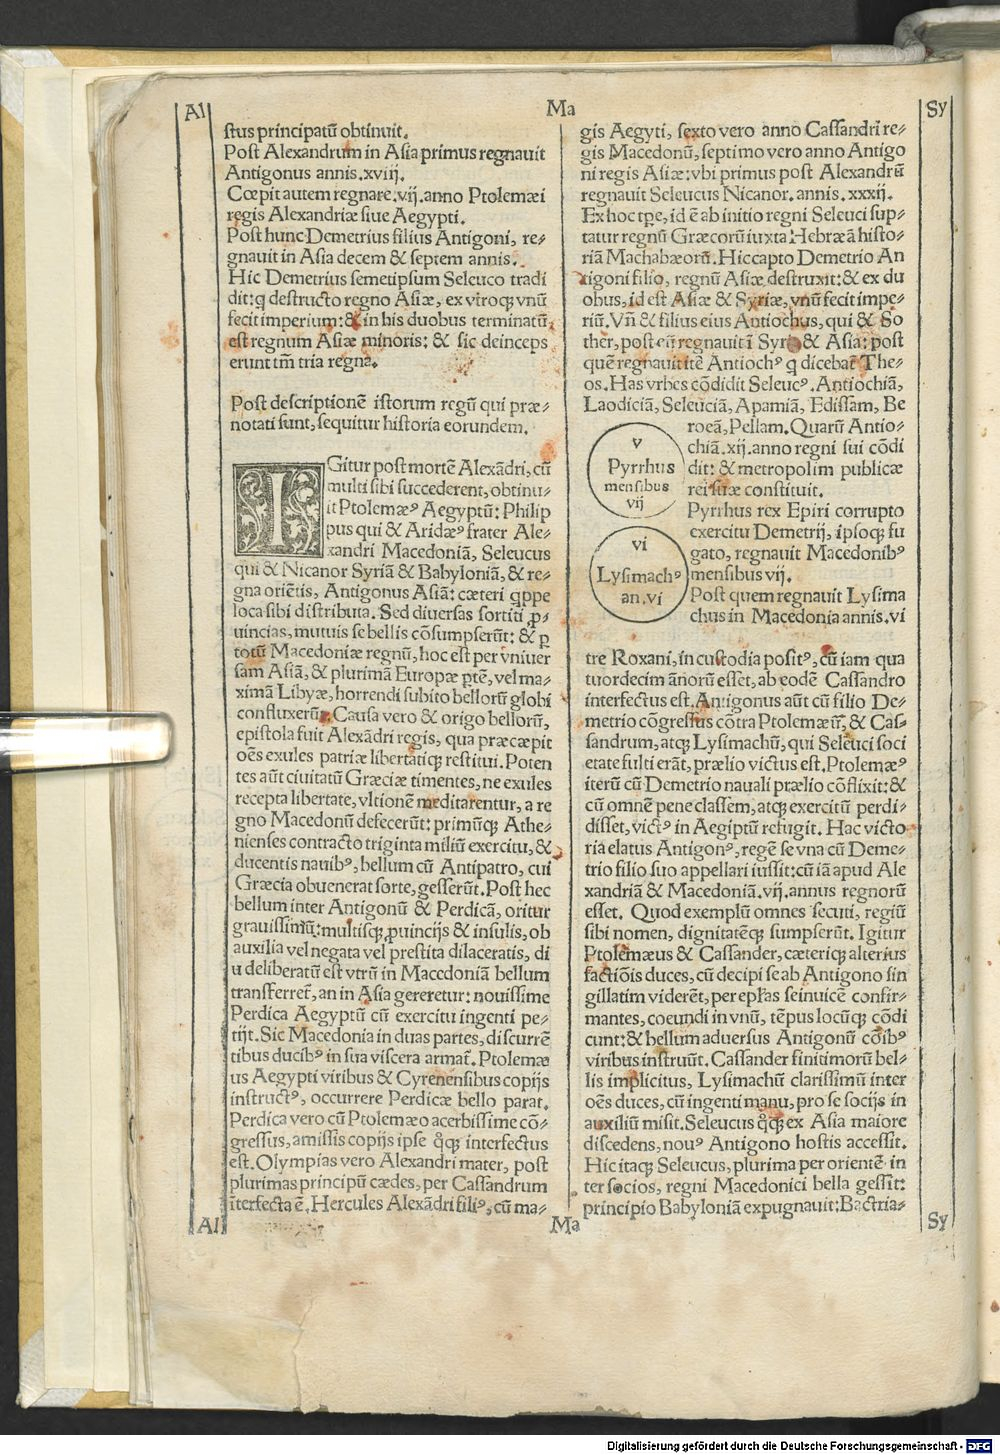 Al
Ma
Sy
stus principatū obtinuit.
Post Alexandrum in Asia primus regnauit
Antigonus annis.xviij.
Cœpit autem regnare.vij.anno Ptolemæi
regis Alexandriæ siue Aegypti.
Post hunc Demetrius filius Antigoni, re-
gnauit in Asia decem & septem annis.
Hic Demetrius semetipsum Seleuco tradi
dit: q destructo regno Asiæ, ex vtroqꝫ vnū
fecit imperium: & in his duobus terminatū
est regnum Asiæ minoris: & sic deinceps
erunt tm̄ tria regna.
Post descriptionē istorum regū qui præ-
notati sunt, sequitur historia eorundem.
IGitur post mortē Alexādri, cū
multi sibi succederent, obtinu-
it Ptolemæꝰ Aegyptū: Philip
pus qui & Aridæꝰ frater Ale-
xandri Macedoniā, Seleucus
qui & Nicanor Syriā & Babyloniā, & re-
gna oriētis, Antigonus Asiā: cæteri qppe
loca sibi distributa. Sed diuersas sortiti ꝓ-
uincias, mutuis se bellis cōsumpserūt: & ꝑ
totū Macedoniæ regnū, hoc est per vniuer
sam Asiā, & plurimā Europæ ꝑtē, vel ma-
ximā Libyæ, horrendi subito bellorū globi
confluxerūt. Causa vero & origo bellorū,
epistola fuit Alexādri regis, qua præcæpit
oēs exules patriæ libertatiqꝫ restitui. Poten
tes aūt ciuitatū Græciæ timentes, ne exules
recepta libertate, vltionē meditarentur, a re
gno Macedonū defecerūt: primūqꝫ Athe-
nienses contracto triginta miliū exercitu, &
ducentis nauibꝰ, bellum cū Antipatro, cui
Græcia obuenerat sorte, gesserūt. Post hec
bellum inter Antigonū & Perdicā, oritur
grauissimū: multisqꝫ ꝓuincijs & insulis, ob
auxilia vel negata vel prestita dilaceratis, di
u deliberatū est vtrū in Macedoniā bellum
transferret̄, an in Asia gereretur: nouissime
Perdica Aegyptū cū exercitu ingenti pe-
tijt. Sic Macedonia in duas partes, discurrē
tibus ducibꝰ in sua viscera armat̄. Ptolemæ
us Aegypti viribus & Cyrenensibus copijs
instructꝰ, occurrere Perdicæ bello parat.
Perdica vero cū Ptolemæo acerbissime cō-
gressus, amissis copijs ipse qͦqꝫ interfectus
est. Olympias vero Alexandri mater, post
plurimas principū cædes, per Cassandrum
īterfecta ē, Hercules Alexādri filiꝰ, cū ma-
gis Aegyti, sexto vero anno Cassandri re-
gis Macedonū, septimo vero anno Antigo
ni regis Asiæ: vbi primus post Alexandrū
regnauit Seleucus Nicanor. annis. xxxij.
Ex hoc tp̄e, id ē ab initio regni Seleuci sup-
tatur regnū Græcorū iuxta Hebræā histo-
riā Machabæorū. Hic capto Demetrio An
tigoni filio, regnū Asiæ destruxit: & ex du
obus, id est Asiæ & Syriæ, vnū fecit impe-
riū. Vn̄ & filius eius Antiochus, qui & So
ther, post eū regnauit ī Syria & Asia: post
quē regnauit itē Antiochꝰ q dicebat̄ The-
os. Has vrbes cōdidit Seleucꝰ. Antiochiā,
Laodiciā, Seleuciā, Apamiā, Edissam, Be
roeā, Pellam. Quarū Antio-
chiā.xij.anno regni sui cōdi
dit: & metropolim publicæ
rei suæ constituit.
Pyrrhus rex Epiri corrupto
exercitu Demetrij, ipsoqꝫ fu
gato, regnauit Macedonibꝰ
mensibus vij.
Post quem regnauit Lysima
chus in Macedonia annis.vi
v
Pyrrhus
mensibus
vij
vi
Lysimachꝰ
an.vi
tre Roxani, in custodia positꝰ, cū iam qua
tuordecim ānorū esset, ab eodē Cassandro
interfectus est. Antigonus aūt cū filio De-
metrio cōgressus cōtra Ptolemæū, & Cas-
sandrum, atqꝫ Lysimachū, qui Seleuci soci
etate fulti erāt, prælio victus est. Ptolemæꝰ
iterū cū Demetrio nauali prælio cōflixit: &
cū omnē pene classem, atqꝫ exercitū perdi-
disset, victꝰ in Aegiptū refugit. Hac victo
ria elatus Antigonꝰ, regē se vna cū Deme-
trio filio suo appellari iussit: cū iā apud Ale
xandriā & Macedoniā.vij.annus regnorū
esset. Quod exemplū omnes secuti, regiū
sibi nomen, dignitatēqꝫ sumpserūt. Igitur
Ptolemæus & Cassander, cæteriqꝫ alterius
factiōis duces, cū decipi se ab Antigono sin
gillatim viderēt, per ep̄las seinuicē confir-
mantes, coeundi in vnū, tēpus locūqꝫ cōdi
cunt: & bellum aduersus Antigonū cōibꝰ
viribus instruūt. Cassander finitimorū bel-
lis implicitus, Lysimachū clarissimū inter
oēs duces, cū ingenti manu, pro se socijs in
auxiliū misit. Seleucus qͦqꝫ ex Asia maiore
discedens, nouꝰ Antigono hostis accessit.
Hic itaqꝫ Seleucus, plurima per orientē in
ter socios, regni Macedonici bella gessit:
principio Babyloniā expugnauit: Bactria-
Al
Ma
Sy
Digitalisierung gefördert durch die Deutsche Forschungsgemeinschaft - DFG